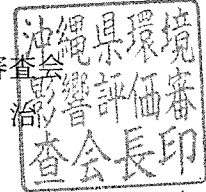 審査会
治
沖縄県環境
影響評価審
査会長印